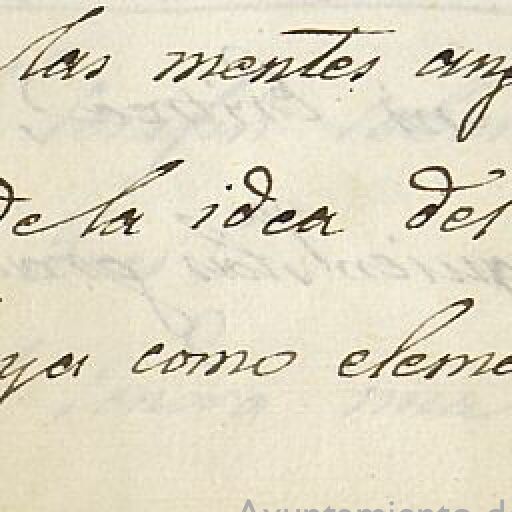 las mentes ang
de la idea del
ya como eleme
Ayuntamiento de